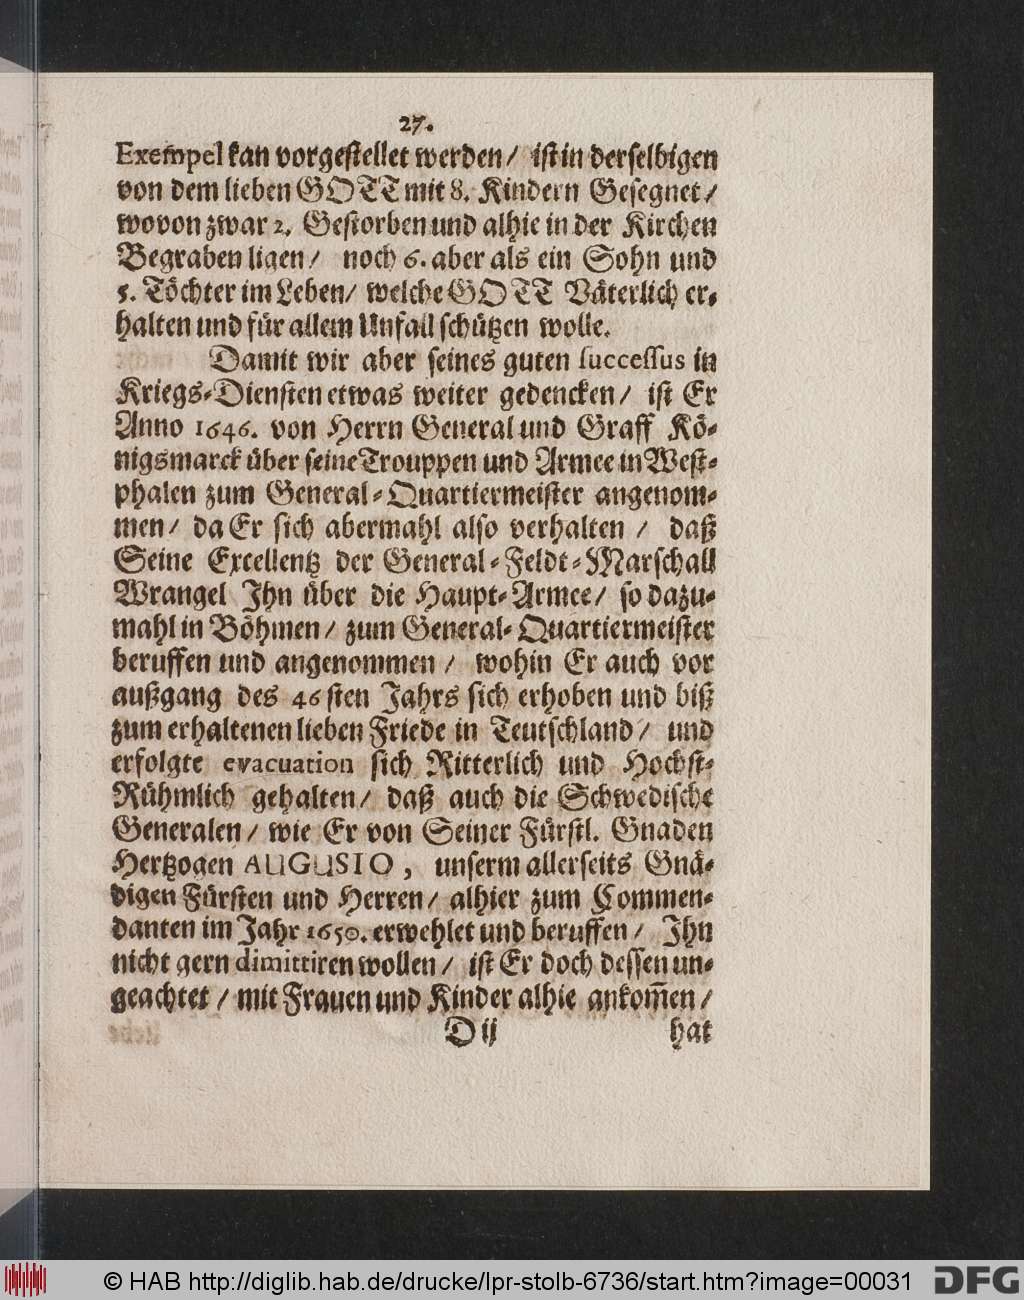 27.
Exempel kan vorgestellet werden / ist in derselbigen
von dem lieben GOTT mit 8. Kindern Gesegnet /
wovon zwar 2. Gestorben und alhie in der Kirchen
Begraben ligen / noch 6. aber als ein Sohn und
5. Töchter im Leben / welche GOTT Väterlich er-
halten und für allem Unfall schützen wolle.
Damit wir aber seines guten successus in
Kriegs-Diensten etwas weiter gedencken / ist Er
Anno 1646. von Herrn General und Graff Kö-
nigsmarck über seine Trouppen und Armee in West-
phalen zum General-Quartiermeister angenom-
men / da Er sich abermahl also verhalten / daß
Seine Excellentz der General-Feldt-Marschall
Wrangel Ihn über die Haupt-Armee / so dazu-
mahl in Böhmen / zum General-Quartiermeister
beruffen und angenommen / wohin Er auch vor
außgang des 46sten Jahrs sich erhoben und biß
zum erhaltenen lieben Friede in Teutschland / und
erfolgte evacuation sich Ritterlich und Hochst-
Rühmlich gehalten / daß auch die Schwedische
Generalen / wie Er von Seiner Fürstl. Gnaden
Hertzogen AUGUSIO, unserm allerseits Gnä-
digen Fürsten und Herren / alhier zum Commen-
danten im Jahr 1650. erwehlet und beruffen / Ihn
nicht gern dimittiren wollen / ist Er doch dessen un-
geachtet / mit Frauen und Kinder alhie ankom̃en /
D ij hat
© HAB http://diglib.hab.de/drucke/lpr-stolb-6736/start.htm?image=00031 DFG